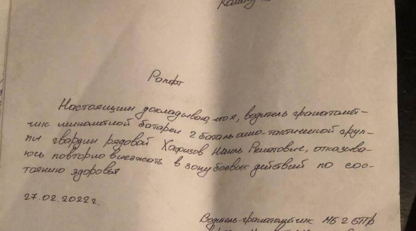 Рапорт
Настоящим докладываю, что я, водитель гранатомёт-
чик миномётной батареи 2 батальонно-тактической груп-
пы гвардии рядовой Хафизов Наиль Решатович, отказыва-
юсь повторно выезжать в зону боевых действий по сос-
тоянию здоровья
27.02.2022 г.
Водитель-гранатомётчик МБ 2 БТГ